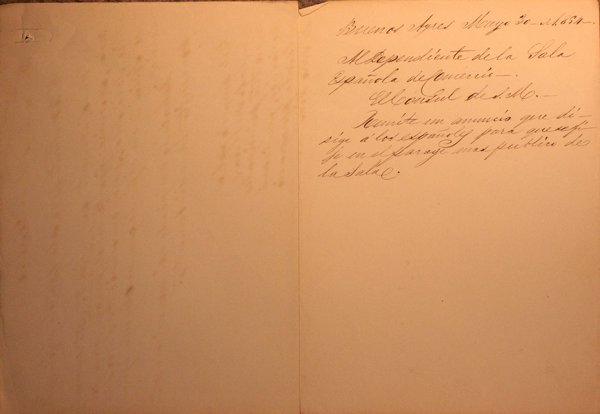 Buenos Ayres Mayo 30 de 1854.
Al Dependiente de la Sala
Española de Comercio.
El Consul de S. M.
Remite un anuncio que di-
rige á los españoles para que se fi-
je en el parage mas público de
la Sala.